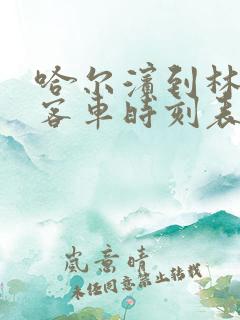 哈尔滨到林
客车时刻表
岚意晴
未经同意禁止转载